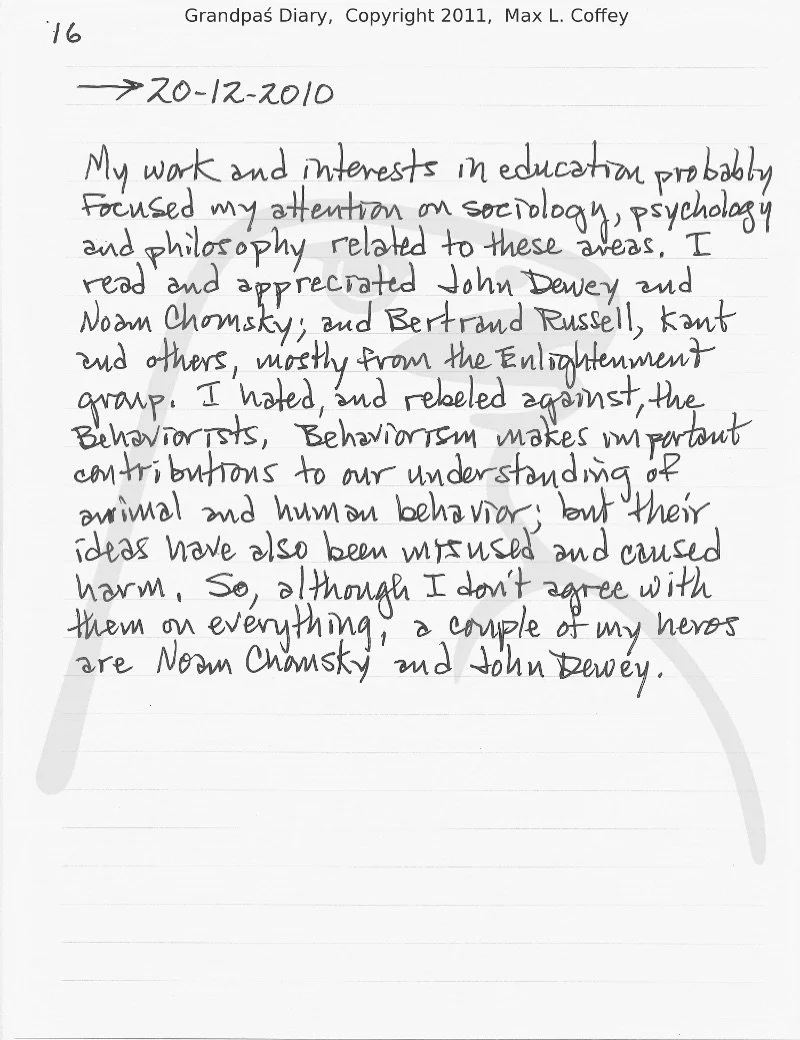 Grandpaś Diary, Copyright 2011, Max L. Coffey
'16
→20-12-2010
My work and interests in education probably
focused my attention on sociology, psychology
and philosophy related to these areas. I
read and appreciated John Dewey and
Noam Chomsky; and Bertrand Russell, Kant
and others, mostly from the Enlightenment
group. I hated, and rebeled against, the
Behaviorists, Behaviorism makes important
contributions to our understanding of
animal and human behavior; but their
ideas have also been misused and caused
harm. So, although I don't agree with
them on everything, a couple of my heros
are Noam Chomsky and John Dewey.